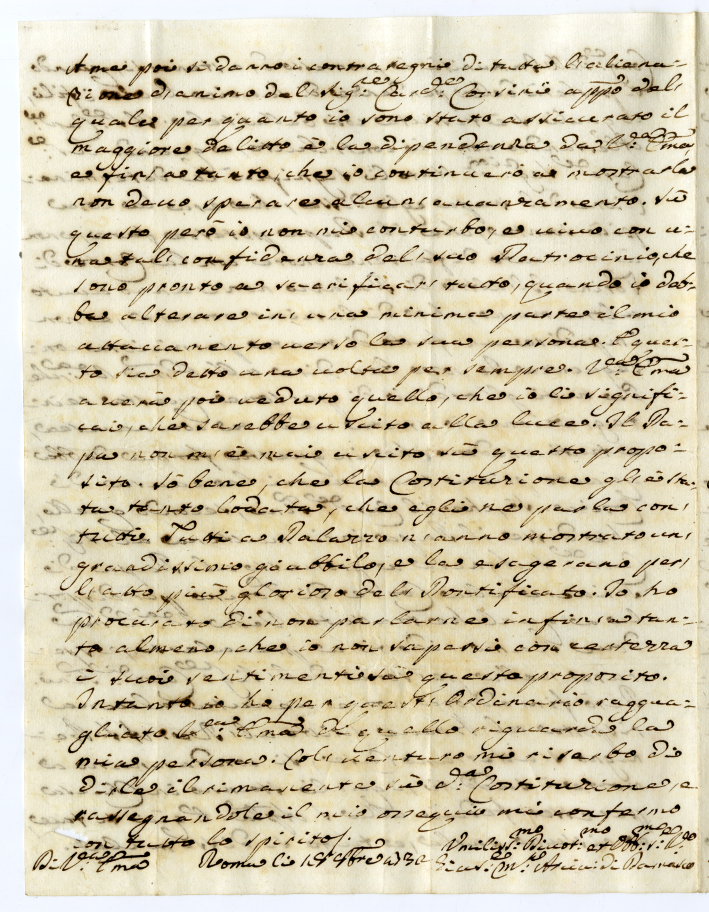 A me poi si danno i contrasegni di tutta l'aliena-
zione d'animo del Sig.re Card.le Corsini app.o del
quale per quanto io sono stato assicurato il
maggiore delitto è la dipendenza da V.ra Em̃a
e fin a tanto, che io continuerò a mostrarla
non devo sperare alcun avanzamento. Sù
questo però io non mi conturbo, e vivo con u-
na tal confidenza del suo Patrocinio, che
sono pronto a sacrificar tutto, quando io dob-
ba alterare in una minima parte il mio
attaccamento verso la sua persona. E ques-
to sia detto una volta per sempre. V.ra Em̃a
averà poi veduto quello, che io li signifi-
cai, che sarebbe uscito alla luce. Il Pa-
pa non m'è mai uscito sù questo propo-
sito. Sò bene, che la Costituzione gli è sta-
ta tanto lodata, che egli ne parla con
tutti. Tutti a Palazzo n'anno mostrato un
grandissimo giubbilo, e la esagerano per
l'atto più glorioso del Pontificato. Io ho
procurato di non parlarne infin a tan-
to almeno, che io non sapessi con certezza
i suoi sentimenti sù questo proposito.
Intanto io ho per quest'Ordinario raggua-
gliato V.ra Em̃a di quello riguarda la
mia persona. Col venturo mi riserbo di
dirle il rimanente sù d.a Costituzione, e
rassegnandole il mio ossequio mi confermo
con tutto lo spirito.
Di V.ra Em̃a Roma li 1730 Umiliss.mo Divot.mo et Obb.mo
Arciv. di Damasco